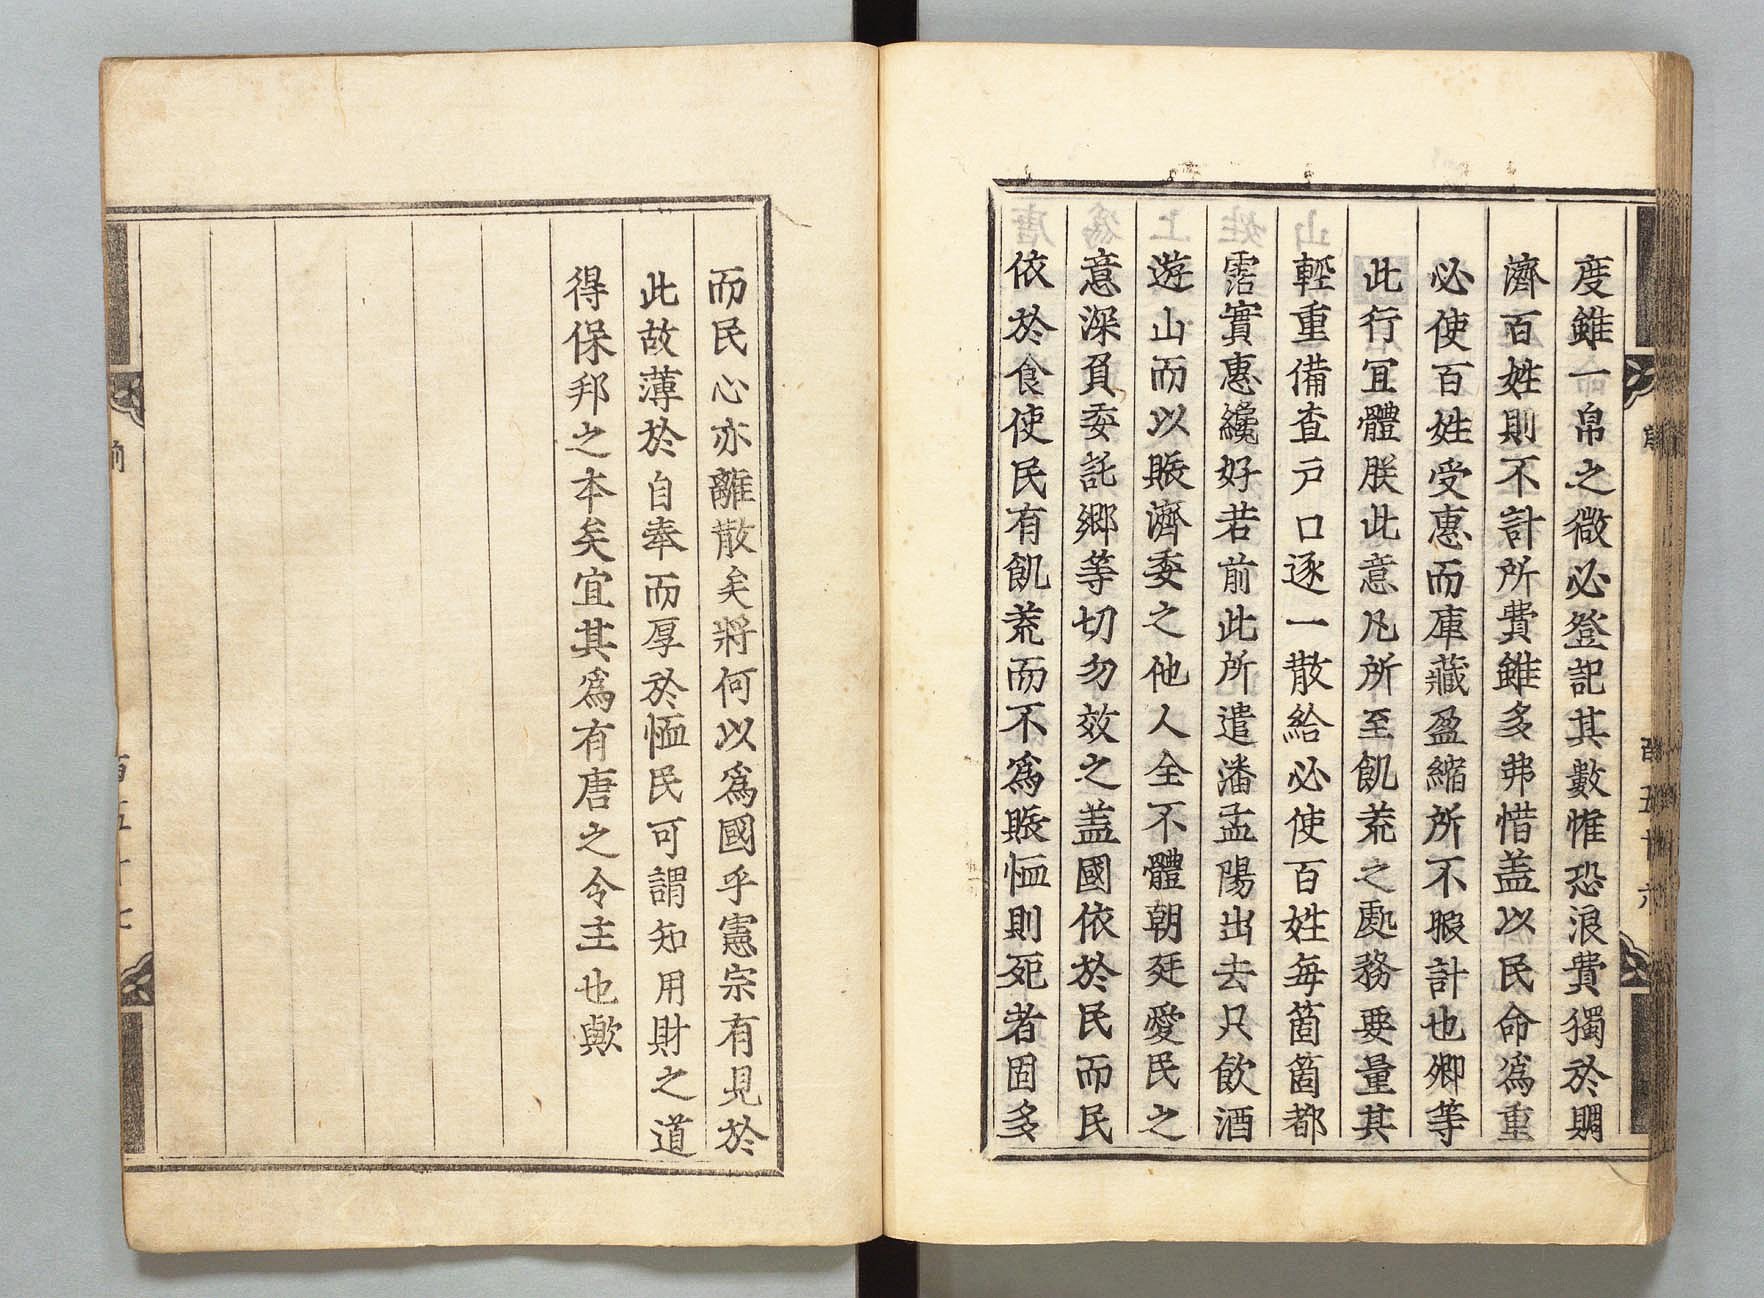 度雖一帛之微必登記其數惟恐浪費獨於賙
濟百姓則不計所費雖多弗惜盖以民命爲重
必使百姓受惠而庫藏盈縮所不暇計也卿等
此行冝體朕此意凡所至飢荒之處務要量其
輕重備査戸口逐一散給必使百姓每箇箇都
霑實惠纔好若前此所遣潘孟陽出去只飮酒
遊山而以賑濟委之他人全不體朝廷愛民之
意深負委託卿等切勿效之盖國依於民而民
依於食使民有飢荒而不爲賑恤則死者固多
而民心亦離散矣將何以爲國乎憲宗有見於
此故薄於自奉而厚於恤民可謂知用財之道
得保邦之本矣宜其爲有唐之令主也歟